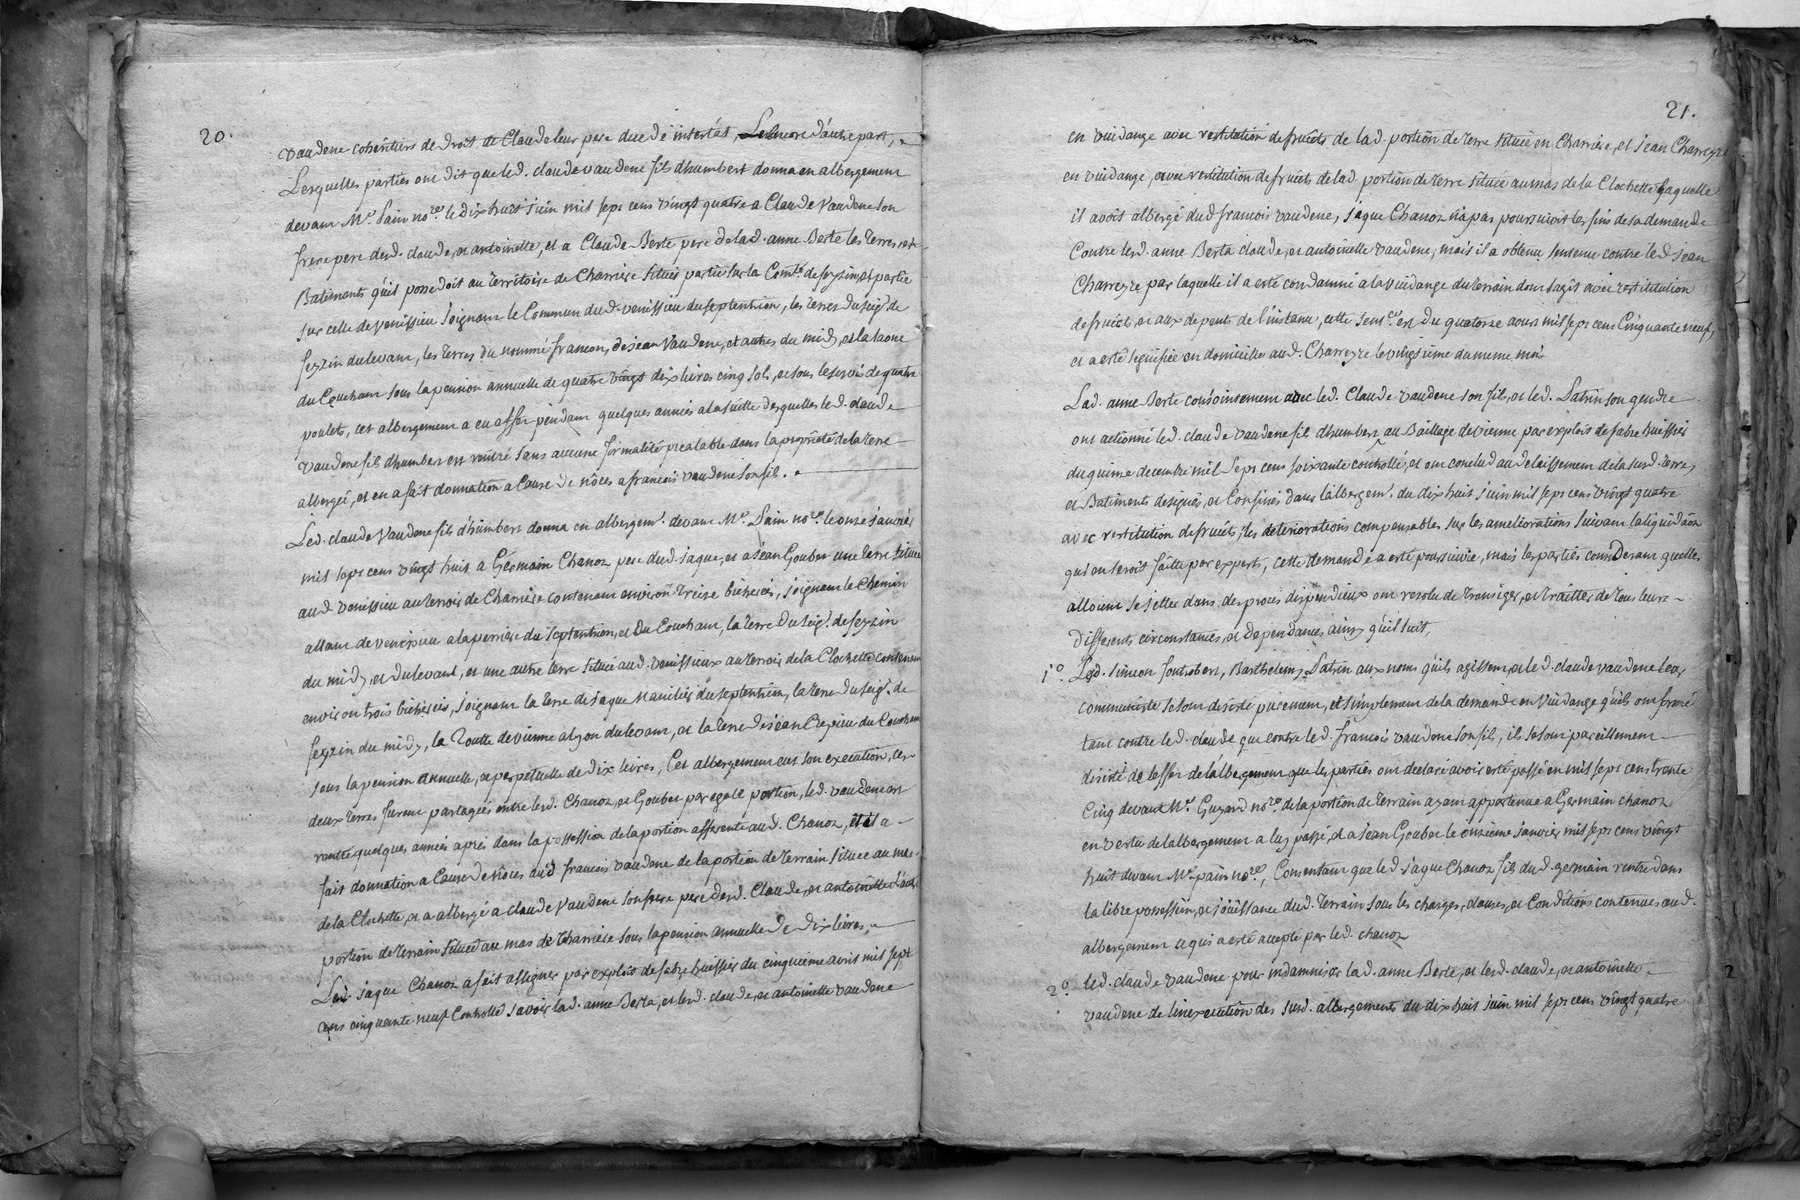 20.
vaudene cohéritiers de droit de Claude leur pere decedé intestat, Lencore d'autre part,
Lesquelles parties ont dit que led. claude vaudene fils dhumbert donna en albergement
devant Me. Pain nore. le dix huit juin mil sept cens vingt quatre a Claude Vaudene son
frere pere desd. claude, et antoinette, et a Claude Berte pere de lad. anne Berte les terres, et
Batiments qu'il possedoit au territoire de Charriere situés partie sur la Comté de feyzin, et partie
sur celle de venissieu joignant le Commun dud. venissieu du septentrion, les terres du seigr. de
feyzin du levant, les terres du nommé francon, de jean Vaudene, et autres du midy, et la
du Couchant sous la pension annuelle de quatre vingt dix livres cinq sols, et sous le servis de quatre
poulets, cet albergement a eu effet pendant quelques années a la suitte desquelles led. claude
vaudene fils dhumbert est rentré sans aucune formalité prealable dans la propriété de la terre
albergée, et en a fait donnation a Cause de nôces a francois vaudene son fils.
Led. claude Vaudene fils d'humbert donna en albergemt. devant Me. Pain nore. le onze janvier
mil sept cens vingt huit a Germain Chanoz pere dud. jaque, et a jean Gouber une terre situee
aud. venissieu au terroir de Charriere contenant environ treize bicherées, joignant le Chemin
allant de venissieu a la perriere du septentrion, et du Couchant, la terre du seigr. de feyzin
du midy, et du levant, et une autre terre située aud. venissieux au terroir de la Clochette contenant
environ trois bicherées, joignant la terre de jaque Marilier du septentrion, la terre du seigr. de
feyzin du midy, la Routte de vienne a lyon du levant, et la terre de jean Creyzieu du Couchant
sous la pension annuelle, et perpetuelle de dix livres, Cet albergement eut son execution, ces
deux terres furent partagées entre lesd. Chanoz, et Gouber par egale portion, led. vaudene est
rentré quelques années après dans la possession de la portion afferente aud. Chanoz, et il a
fait donnation a Cause de nôces aud. francois vaudene de la portion de terrain située au mas
de la Clochette, et a albergé a claude Vaudene son frere pere desd. Claude, et antoinette l'autre
portion de terrain située au mas de Charriere sous la pension annuelle de dix livres.
Led. jaque Chanoz a fait assigner par exploit de fabre huissier du cinquieme avril mil sept
cens cinquante neuf Controllé savoir lad. anne Berta, et lesd. claude, et antoinette vaudene
21.
en vuidange avec restitution de fruits de lad. portion de terre située en Charriere, et jean Charreyre
en vuidange, avec restitution de fruits de lad. portion de terre située au mas de la Clochette laquelle
il avoit albergé dud. francois vaudene, jaque Chanoz n'a pas poursuivi les fins de sa demande
Contre lesd. anne Berta claude, et antoinette vaudene, mais il a obtenu sentence contre led. jean
Charreyre par laquelle il a esté condamné a la vuidange du terrain dont s'agit avec restitution
de fruict, et aux depents de l'instance, cette sence. est du quatorze aoust mil sept cens Cinquante neuf,
et a esté signifiée en domicile aud. Charreyre le vingtieme du meme mois
Lad. anne Berte conjointement avec led. Claude vaudene son fils, et led. Patrin son gendre
ont actionné led. claude vaudene fils dhumbert au Baillage de vienne par exploit de fabre huissier
du quinze decembre mil sept cens soixante controllé, et ont conclud au delaissement de la susd. terre,
et Batiments designés, et Confinés dans l'albergemt. du dix huit juin mil sept cens vingt quatre
avec restitution de fruits, les deteriorations compensables sur les ameliorations suivant la liquidaon
qui en seroit faitte par experts, cette demande a esté poursuivie, mais les parties considerant quelles
alloient se jetter dans des procès dispendieux ont resolu de transiger, et traitter de tous leurs
differents circonstances, et dependances ainsy qu'il suit,
1o. Led. simeon joutrobert, Barthelemy Patrin aux noms qu'ils agissent, et led. claude vaudene leur
communiste se sont desisté purement, et simplement de la demande en Vuidange qu'ils ont formé
tant contre led. claude que contre led. francois vaudene son fils, ils se sont pareillement
desisté de l'effet de l'albergement que les parties ont declaré avoir esté passé en mil sept cens trente
Cinq devant Me. Guyard nore. de la portion de terrain ayant appartenue a Germain chanoz
en vertu de l'albergement a luy passé, et a jean Gouber le onzieme janvier mil sept cens vingt
huit devant Me. pain nore., Consentant que led. jaque Chanoz fils dud. germain rentre dans
la libre possession, et joüissance dud. terrain sous les charges, clauses, et Conditions contenues aud.
albergement ce qui a esté accepté par led. chanoz
2o. led. claude vaudene pour indamniser lad. anne Berte, et lesd. claude, et antoinette
vaudene de l'inexecution des susd. albergements du dix huit juin mil sept cens vingt quatre